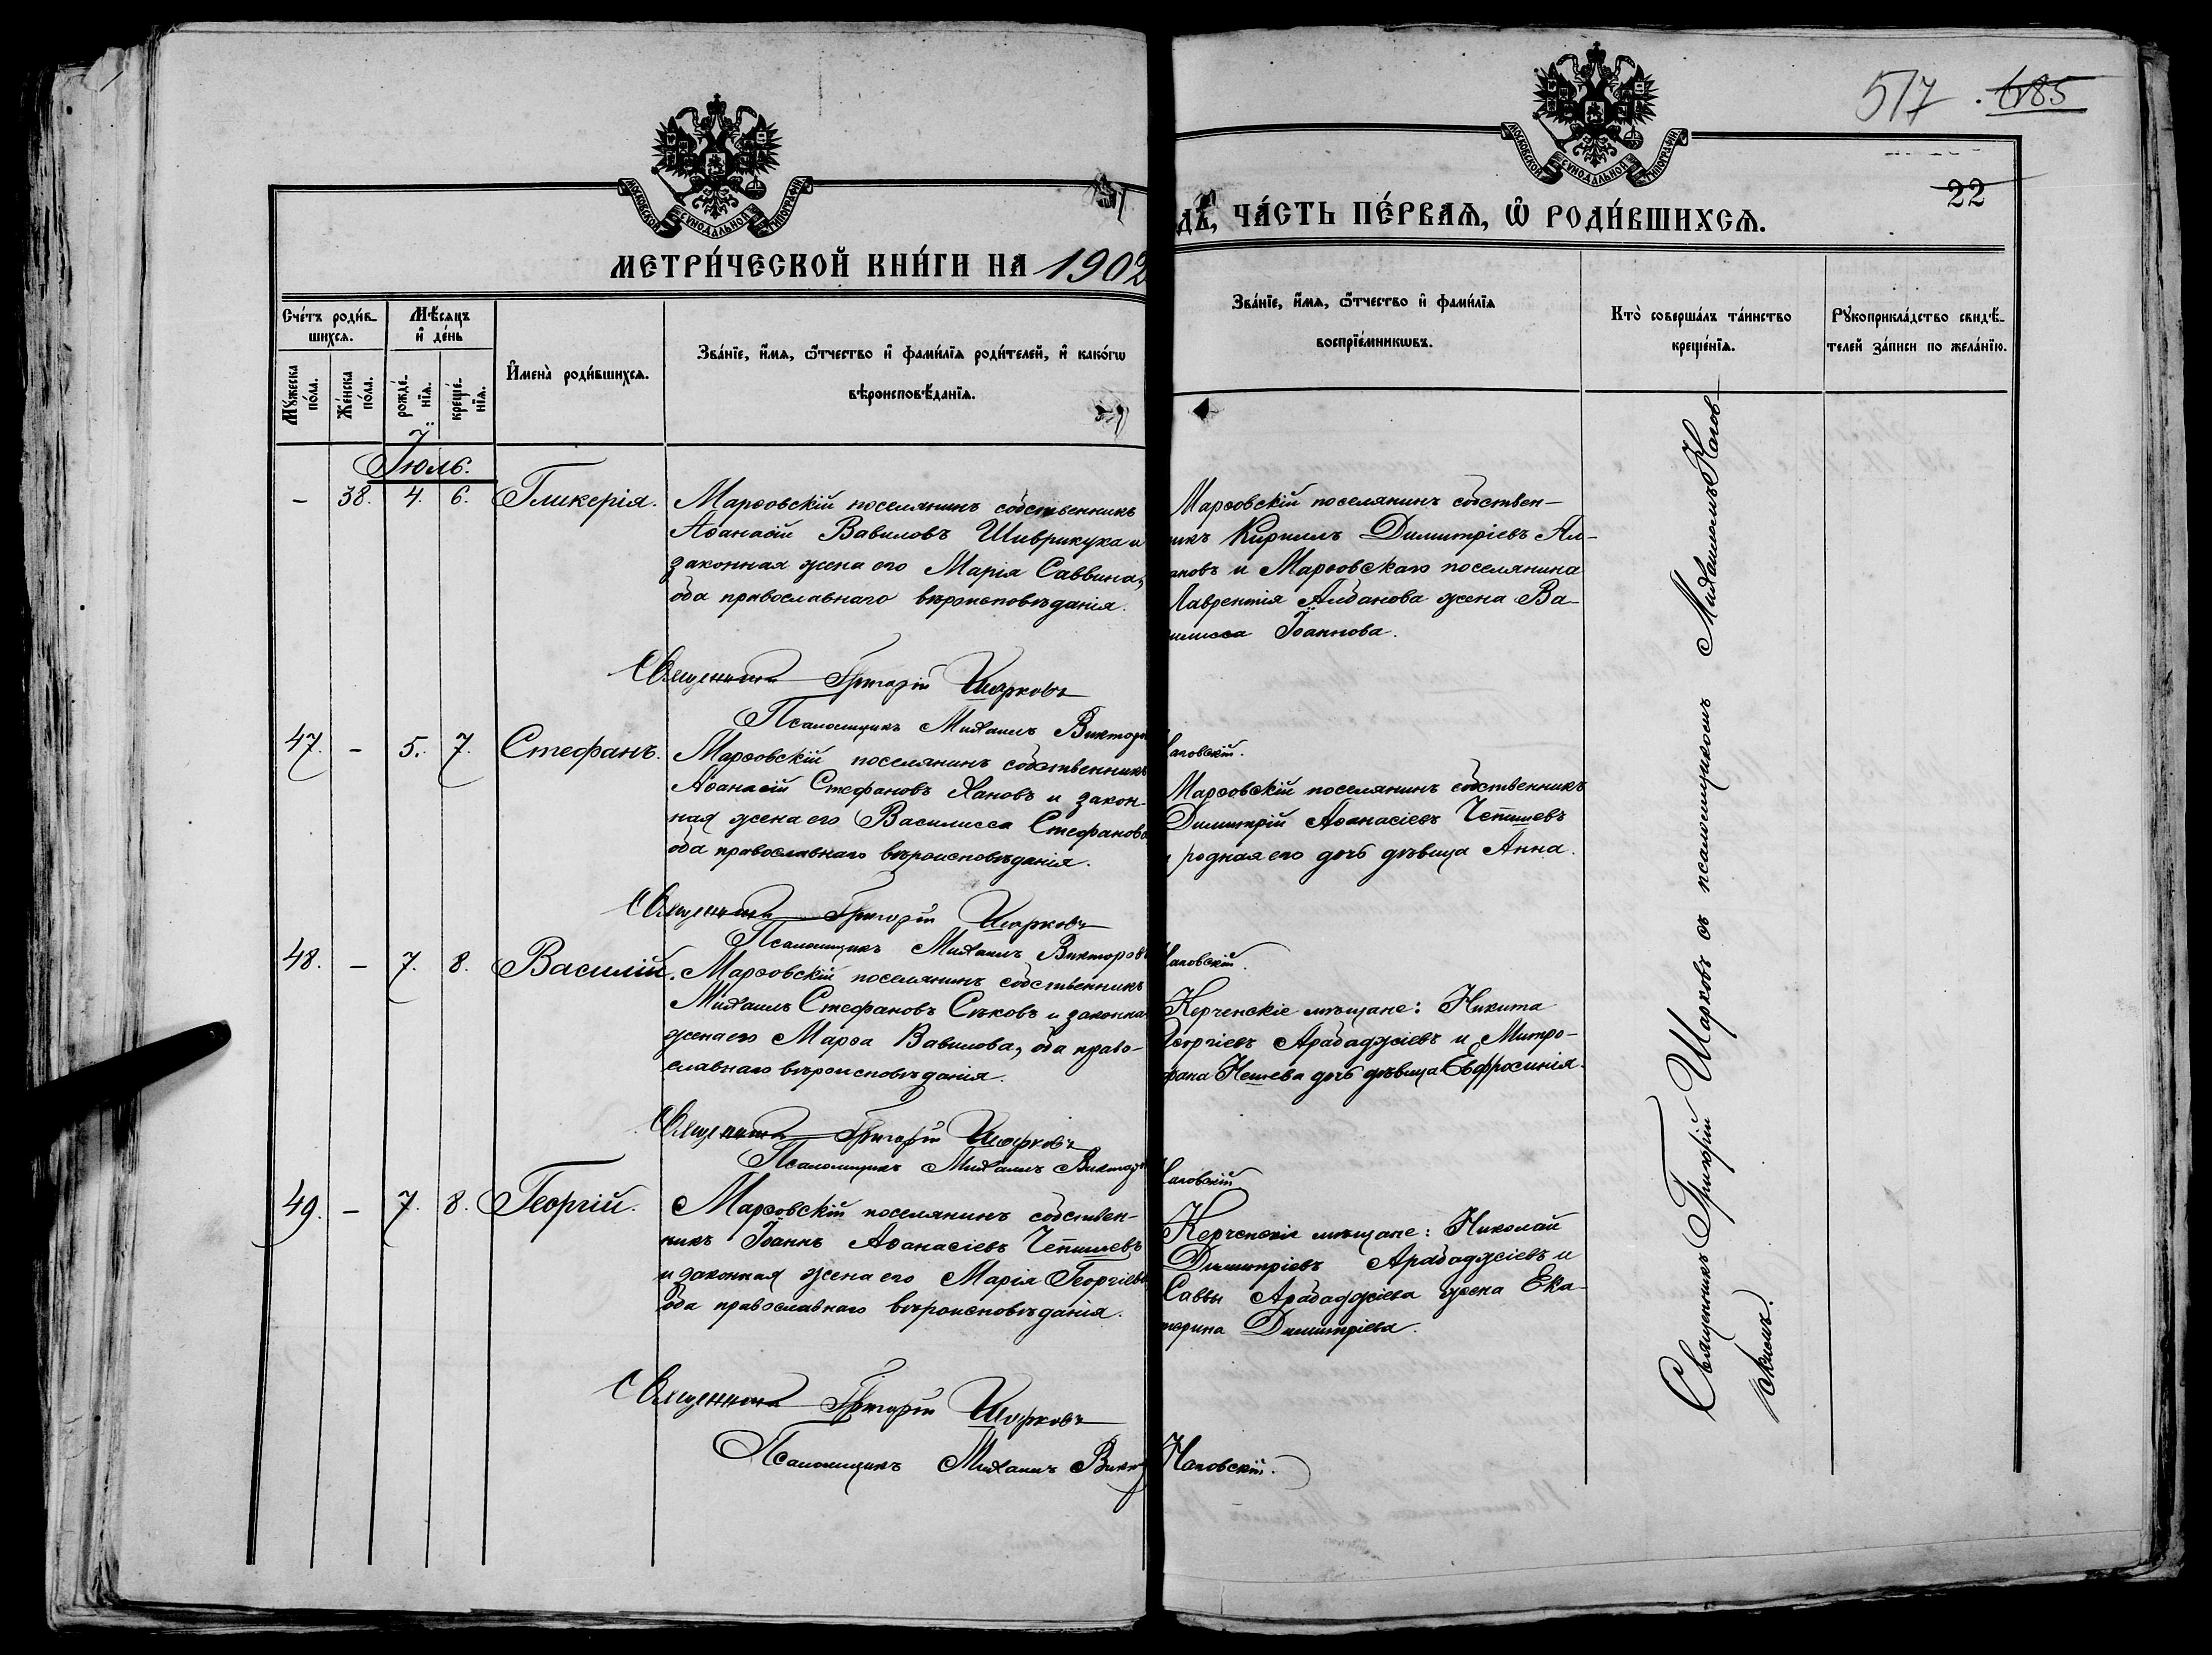 517 . 685
22
МОСКОВСКОЙ СѴНОДАЛЬНОЙ ТИПОГРАФІИ
МОСКОВСКОЙ СѴНОДАЛЬНОЙ ТИПОГРАФІИ
МЕТРИ́ЧЕСКОЙ КНИ́ГИ НА 1902
ДѢ, ЧА́СТЬ ПЕ́РВАѦ, Ѿ РОДИ́ВШИХСѦ.
Сче́тъ роди́в-
шихсѧ.
Мꙋ́жеска по́ла.
Же́нска по́ла.
Мѣ́сяцъ
и҆ де́нь
рожде́-
нїѧ.
креще́-
нїѧ.
И҆мена̀ роди́вшихсѧ.
Зва́нїе, и҆́мѧ, ѻ҆́тчество и҆ фами́лїѧ роди́телей, и҆ како́гѡ
вѣроисповѣ́данїѧ.
Зва́нїе, и҆́мѧ, ѻ҆́тчество и҆ фами́лїѧ
воспрїе́мникѡвъ.
Кто̀ соверша́лъ та́инство
креще́нїѧ.
Рꙋкоприкла́дство свидѣ́-
телей за́писи по жела́нїю.
Іюль.
– 38. 4. 6. Гликерія.
Марѳовскій поселянинъ собственникъ
Аѳанасій Вавиловъ Шиврикука и
законная жена его Марія Саввина,
оба православнаго вѣроисповѣданія.
Марѳовскій поселянинъ собствен-
никъ Кириллъ Димитріевъ Ал-
ановъ и Марѳовскаго поселянина
Лаврентія Албанова жена Ва-
илисса Іоаннова.
Священникъ Григорій Шарковъ
Псаломщикъ Михаилъ Виктор
аговскій.
47. – 5. 7. Стефанъ.
Марѳовскій поселянинъ собственникъ
Аѳанасій Стефановъ Хановъ и закон-
ная жена его Василисса Стефанова
оба православнаго вѣроисповѣданія.
Марѳовскій поселянинъ собственникъ
Димитрій Аѳанасіевъ Чепишевъ
и родная его дочь дѣвица Анна.
Священникъ Григорій Шарковъ
Псаломщикъ Михаилъ Викторовъ
аговскій.
48. – 7. 8. Василій.
Марѳовскій поселянинъ собственникъ
Михаилъ Стефановъ Сѣковъ и законна
жена его Марѳа Вавилова, оба право-
славнаго вѣроисповѣданія.
Керченскіе мѣщане: Никита
Георгіевъ Арабаджіевъ и Митро-
фана Нешева дочь дѣвица Евфросинія.
Священникъ Григорій Шарковъ
Псаломщикъ Михаилъ Виктор
аговскій
49. – 7. 8. Георгій.
Марѳовскій поселянинъ собствен-
никъ Іоаннъ Аѳанасіевъ Чепишевъ
и законная жена его Марія Георгіев
оба православнаго вѣроисповѣданія.
Керченскіе мѣщане: Николай
Димитріевъ Арабаджіевъ и
Саввы Арабаджіева жена Ека-
терина Димитріева.
Священникъ Григорій Шарковъ
Псаломщикъ Михаилъ Викт
Наговскій.
Священникъ Григорій Шарковъ съ псаломщикомъ Михаиломъ Нагов-
скимъ.